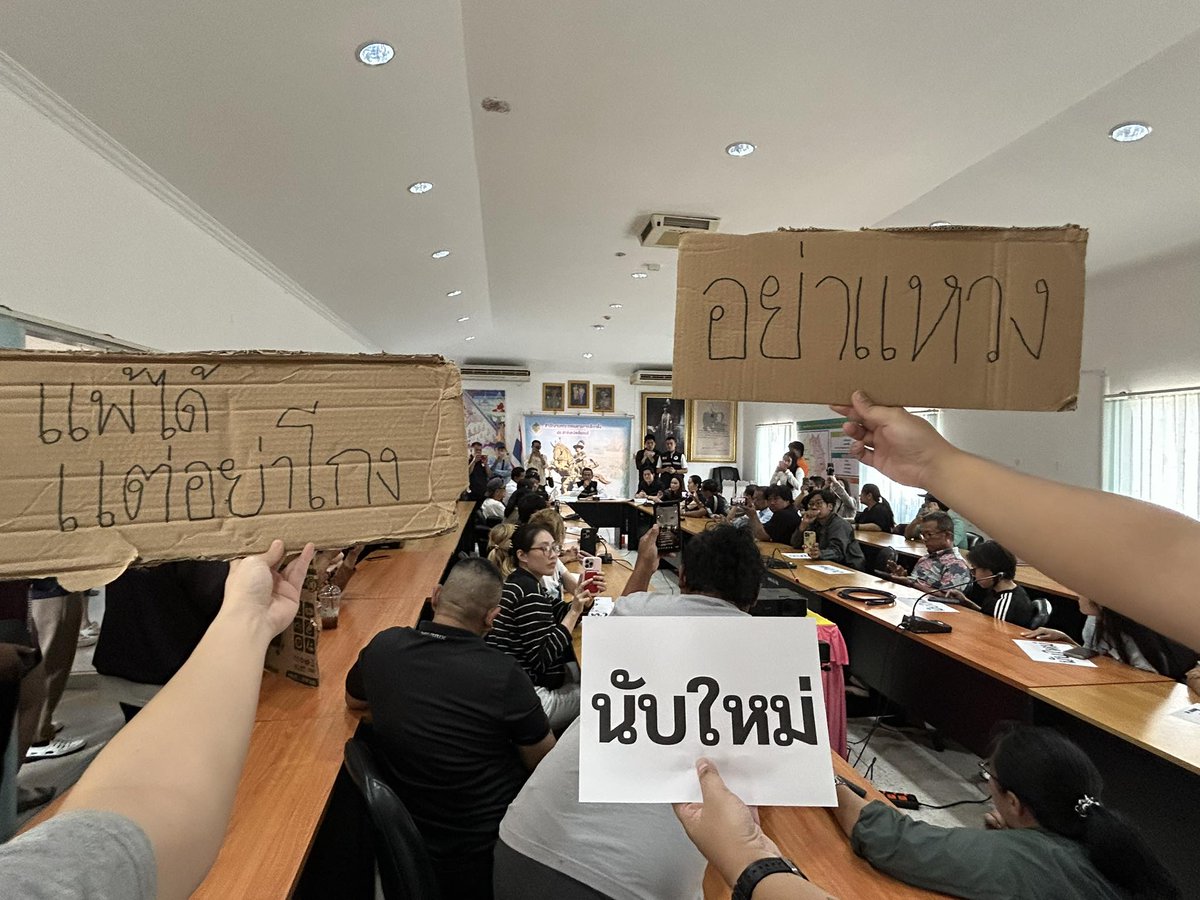 แพ้ได้
แต่อย่าโกง
อย่าแหวง
นับใหม่